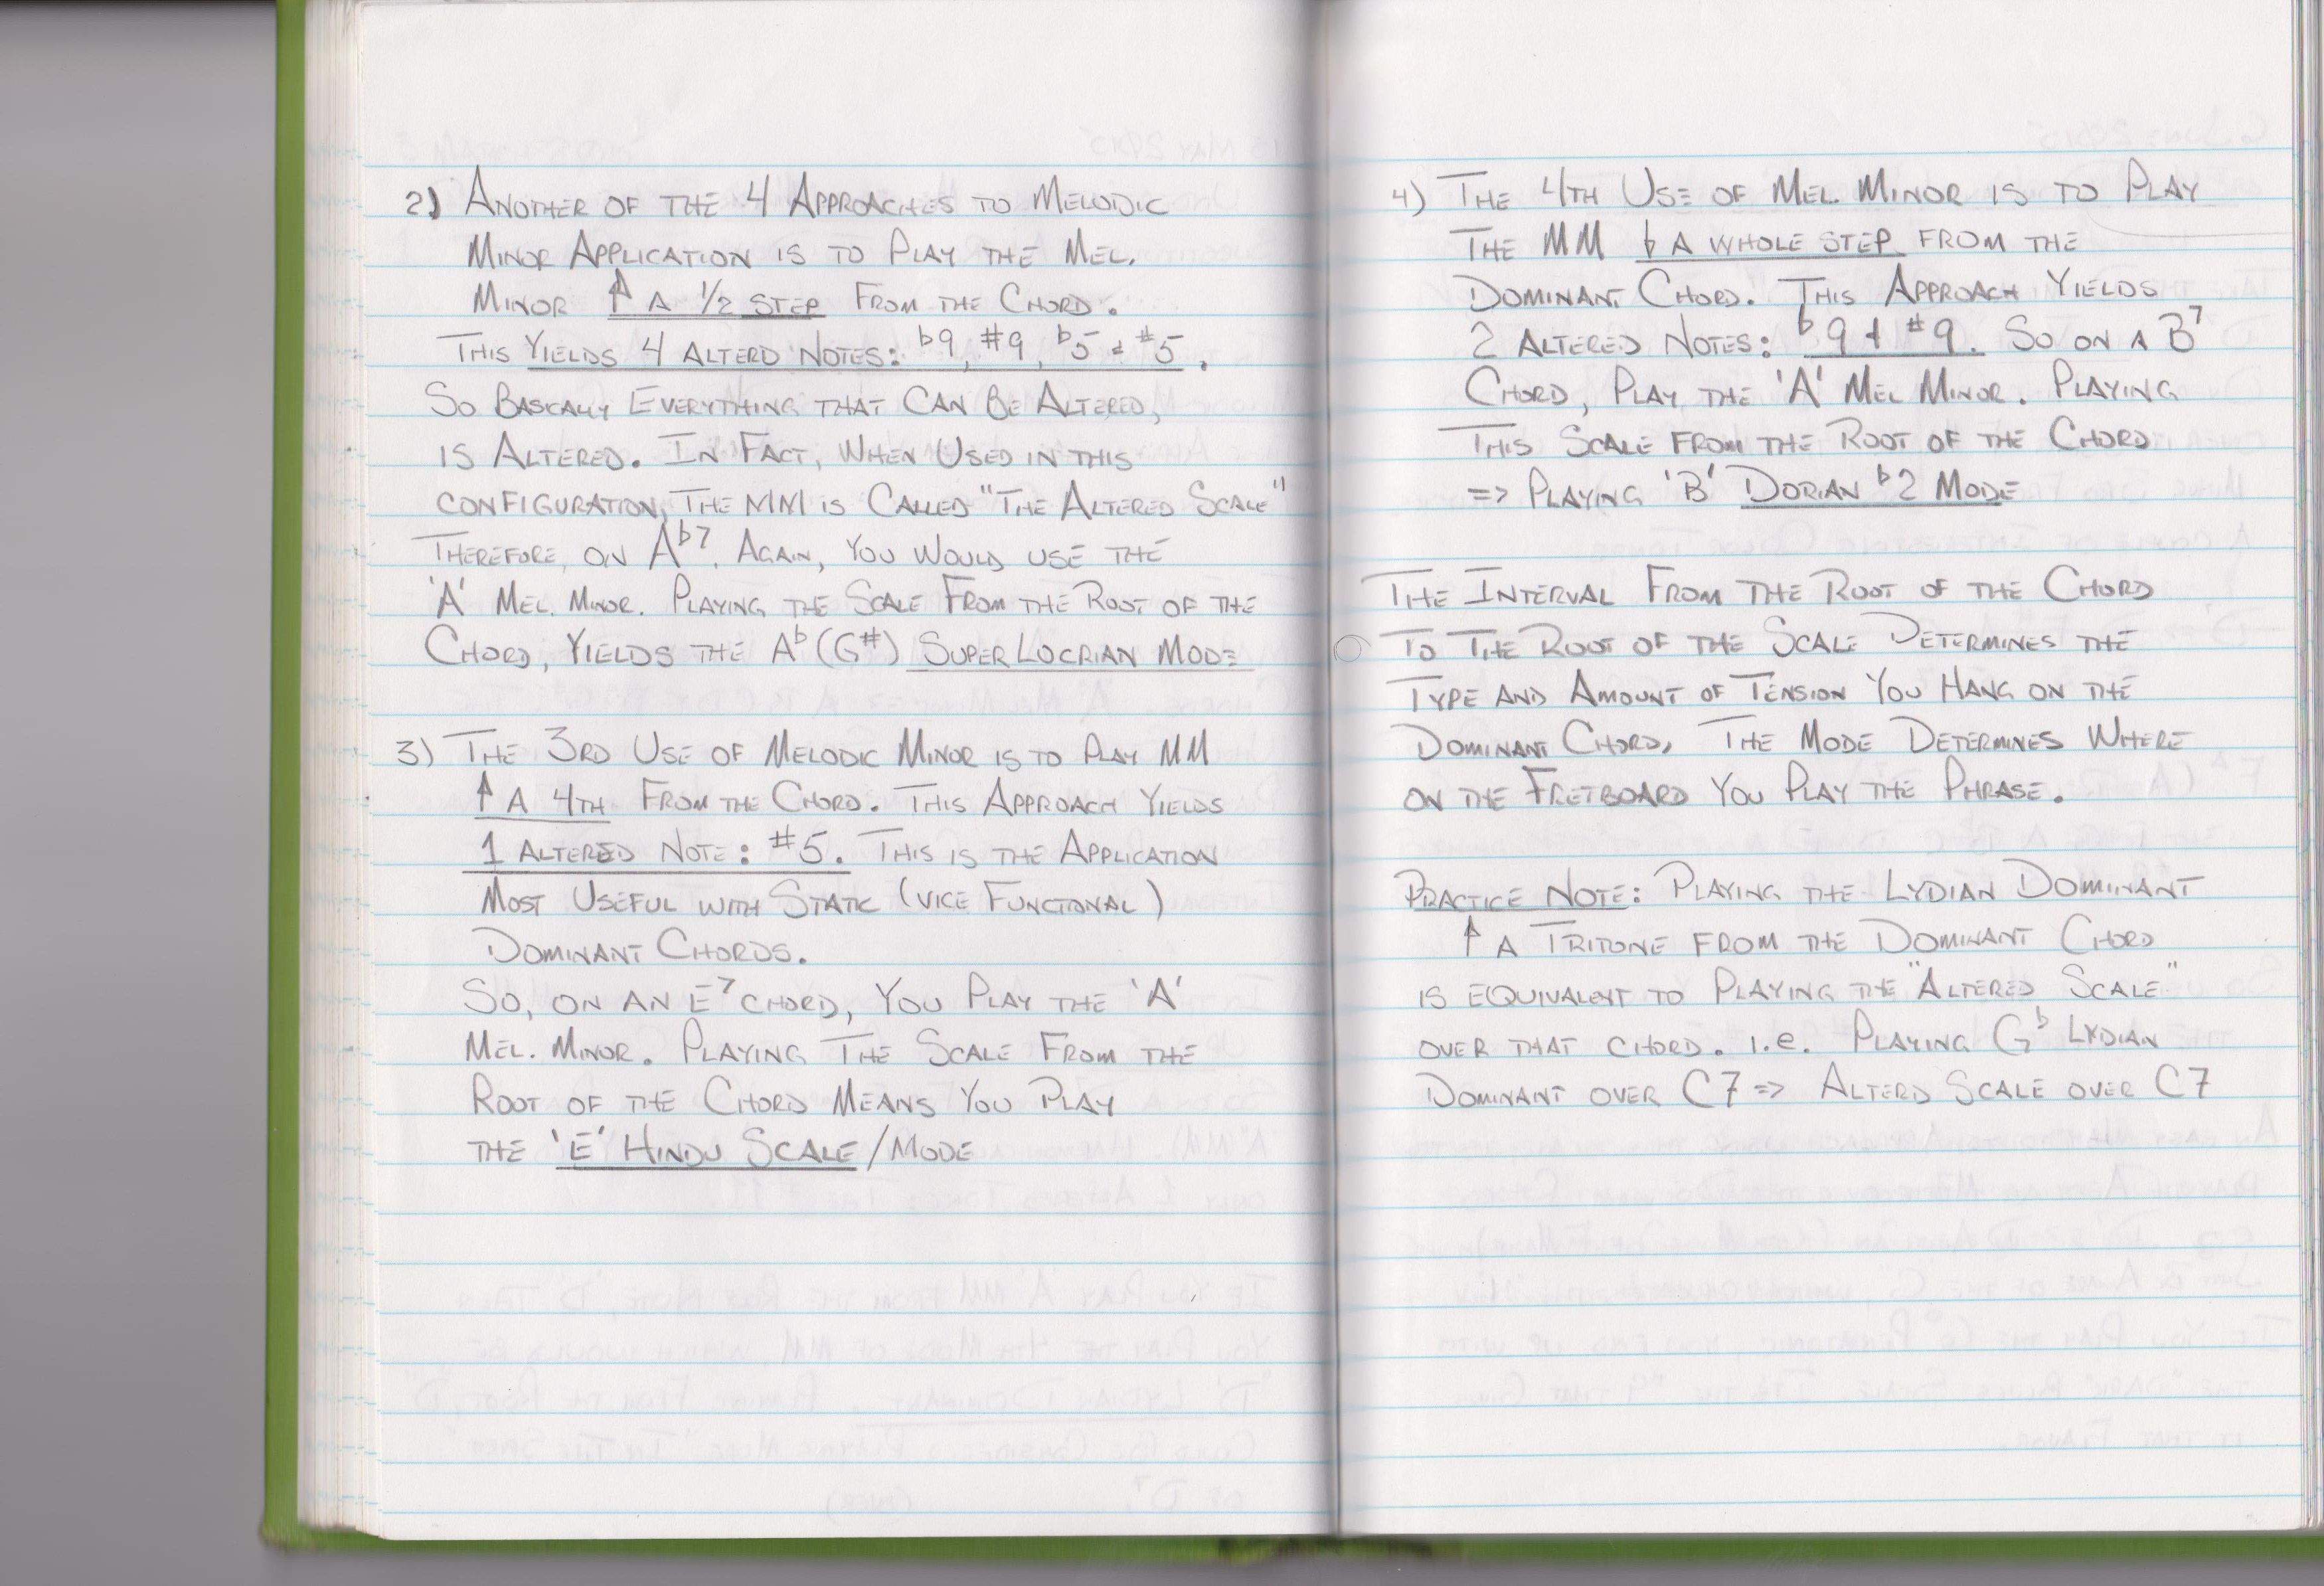 2) ANOTHER OF THE 4 APPROACHES TO MELODIC
MINOR APPLICATION IS TO PLAY THE MEL.
MINOR ↑ A 1/2 STEP FROM THE CHORD.
THIS YIELDS 4 ALTERD NOTES: ♭9, #9, ♭5 & #5.
SO BASICALLY EVERYTHING THAT CAN BE ALTERED,
IS ALTERED. IN FACT, WHEN USED IN THIS
CONFIGURATION, THE MM IS CALLED "THE ALTERED SCALE"
THEREFORE, ON A♭7. AGAIN, YOU WOULD USE THE
'A' MEL. MINOR. PLAYING THE SCALE FROM THE ROOT OF THE
CHORD, YIELDS THE A♭ (G#) SUPER LOCRIAN MODE
3) THE 3RD USE OF MELODIC MINOR IS TO PLAY MM
↑ A 4TH FROM THE CHORD. THIS APPROACH YIELDS
1 ALTERED NOTE: #5. THIS IS THE APPLICATION
MOST USEFUL WITH STATIC (VICE FUNCTIONAL)
DOMINANT CHORDS.
SO, ON AN E7 CHORD, YOU PLAY THE 'A'
MEL. MINOR. PLAYING THE SCALE FROM THE
ROOT OF THE CHORD MEANS YOU PLAY
THE 'E' HINDU SCALE/MODE
4) THE 4TH USE OF MEL. MINOR IS TO PLAY
THE MM ♭ A WHOLE STEP FROM THE
DOMINANT CHORD. THIS APPROACH YIELDS
2 ALTERED NOTES: ♭9 & #9. SO ON A B7
CHORD, PLAY THE 'A' MEL MINOR. PLAYING
THIS SCALE FROM THE ROOT OF THE CHORD
=> PLAYING 'B' DORIAN ♭2 MODE
THE INTERVAL FROM THE ROOT OF THE CHORD
TO THE ROOT OF THE SCALE DETERMINES THE
TYPE AND AMOUNT OF TENSION YOU HANG ON THE
DOMINANT CHORD. THE MODE DETERMINES WHERE
ON THE FRETBOARD YOU PLAY THE PHRASE.
PRACTICE NOTE: PLAYING THE LYDIAN DOMINANT
↑ A TRITONE FROM THE DOMINANT CHORD
IS EQUIVALENT TO PLAYING THE "ALTERED SCALE"
OVER THAT CHORD. i.e. PLAYING G♭ LYDIAN
DOMINANT OVER C7 => ALTERD SCALE OVER C7